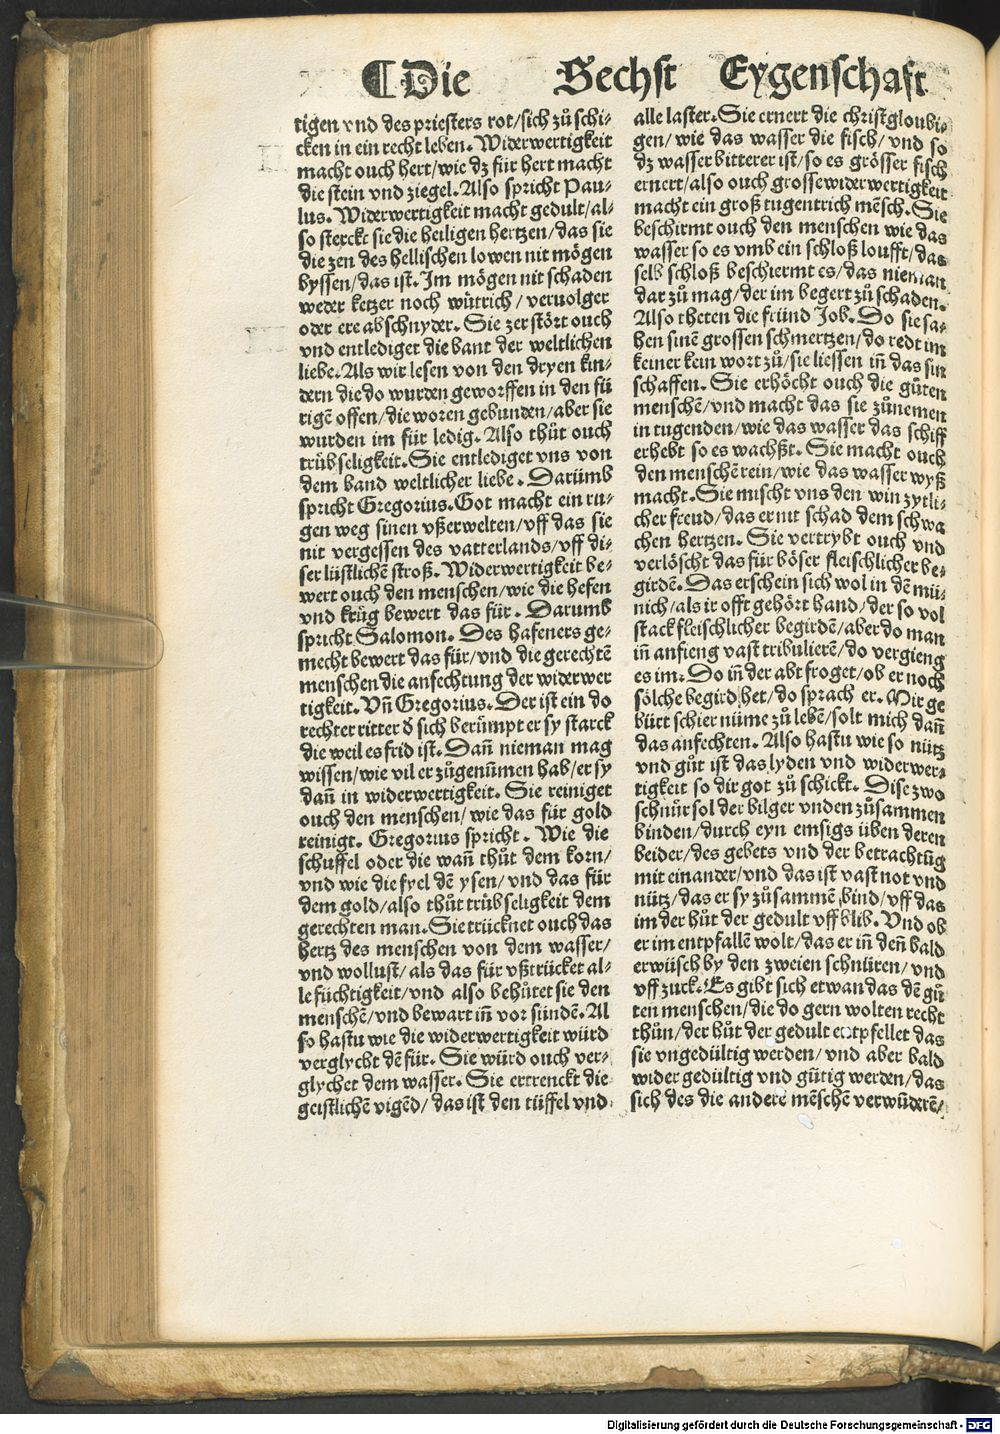 ¶ Die Sechst Eygenschaft
tigen vnd des priesters rot/sich zů schi-
cken in ein recht leben. Widerwertigkeit
macht ouch hert/wie dz für hert macht
die stein vnd ziegel. Also spricht Pau-
lus. Widerwertigkeit macht gedult/al-
so sterckt sie die heiligen hertzen/das sie
die zen des hellischen lowen nit mögen
byssen/das ist. Im mögen nit schaden
weder ketzer noch wütrich/ veruolger
oder ere abschnyder. Sie zerstört ouch
vnd entlediget die bant der weltlichen
liebe. Als wir lesen von den dryen kin-
dern die do wurden geworffen in den fü
rigē offen/die woren gebunden/aber sie
wurden im für ledig. Also thůt ouch
trübseligkeit. Sie entlediget vns von
dem band weltlicher liebe. Darümb
spricht Gregorius. Got macht ein ru-
gen weg sinen vßerwelten/vff das sie
nit vergessen des vatterlands/vff di-
ser lüstlichē stroß. Widerwertigkeit be-
wert ouch den menschen/wie die hefen
vnd krüg bewert das für. Darumb
spricht Salomon. Des hafeners ge-
mecht bewert das für/vnd die gerechtē
menschen die anfechtung der widerwer
tigkeit. Vn̄ Gregorius. Der ist ein do
rechter ritter d̄ sich berümpt er sy starck
die weil es frid ist. Dan̄ nieman mag
wissen/wie vil er zůgenūmen hab/er sy
dan̄ in widerwertigkeit. Sie reiniget
ouch den menschen/wie das für gold
reinigt. Gregorius spricht. Wie die
schuffel oder die wan̄ thůt dem korn/
vnd wie die fyel dē ysen/vnd das für
dem gold/also thůt trübseligkeit dem
gerechten man. Sie trücknet ouch das
hertz des menschen von dem wasser/
vnd wollust/als das für vßtrücket al-
le füchtigkeit/vnd also behůtet sie den
menschē/vnd bewart in̄ vor sündē. Al
so hastu wie die widerwertigkeit würd
verglycht dē für. Sie würd ouch ver-
glychet dem wasser. Sie ertrenckt die
geistlichē vigēd/das ist den tüffel vnd
alle laster. Sie ernert die christgloubi-
gen/wie das wasser die fisch/vnd so
dz wasser bitterer ist/so es grösser fisch
ernert/also ouch grosse widerwertigkeit
macht ein groß tugentrich mēsch. Sie
beschirmt ouch den menschen wie das
wasser so es vmb ein schloß loufft/das
selb schloß beschiermt es/das nieman
dar zů mag/der im begert zů schaden.
Also theten die fründ Job. Do sie sa-
hen sinē grossen schmertzen/do redt im
keiner kein wort zů/sie liessen in̄ das sin
schaffen. Sie erhöcht ouch die gůten
menschē/vnd macht das sie zůnemen
in tugenden/wie das wasser das schiff
erhebt so es wachßt. Sie macht ouch
den menschē rein/wie das wasser wyß
macht. Sie mischt vns den win zytli-
cher freud/das er nit schad dem schwa
chen hertzen. Sie vertrybt ouch vnd
verlöscht das für böser fleischlicher be-
girdē. Das erschein sich wol in dē mü-
nich/als ir offt gehört hand/der so vol
stack fleischlicher begirdē/aber do man
in̄ anfieng vast tribulierē/do vergieng
es im. Do in̄ der abt froget/ob er noch
sölche begird het/do sprach er. Mir ge
bürt schier nüme zů lebē/solt mich dan̄
das anfechten. Also hastu wie so nütz
vnd gůt ist das lyden vnd widerwer-
tigkeit so dir got zů schickt. Dise zwo
schnür sol der bilger vnden zůsammen
binden/durch eyn emsigs üben deren
beider/des gebets vnd der betrachtūg
mit einander/vnd das ist vast not vnd
nütz/das er sy zůsammē bind/vff das
im der hůt der gedult vff blib. Vnd ob
er im entpfallē wolt/das er in̄ den̄ bald
erwüsch by den zweien schnüren/vnd
vff zuck. Es gibt sich etwan das dē gů
ten menschen/die do gern wolten recht
thůn/der hůt der gedult entpfellet das
sie vngedültig werden/vnd aber bald
wider gedültig vnd gütig werden/das
sich des die andere mēschē verwūderē/
Digitalisierung gefördert durch die Deutsche Forschungsgemeinschaft - DFG